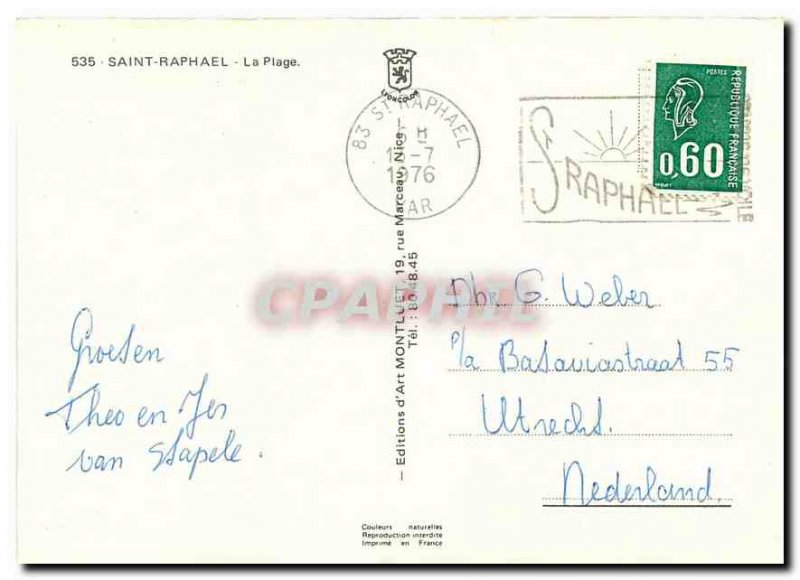 535 · SAINT-RAPHAEL - La Plage.
LYONCOLOR
83 ST RAPHAEL
H
-7
1976
VAR
St RAPHAEL
POSTES
REPUBLIQUE FRANÇAISE
0,60
— Editions d'Art MONTLUET, 19, rue Marceau, Nice —
Tél. : 80.48.45
CPARHIL
Groeten
Theo en Jer
van Stapele.
Dhr. G. Weber
p/a Bataviastraat 55
Utrecht.
Nederland.
Couleurs naturelles
Reproduction interdite
Imprimé en France